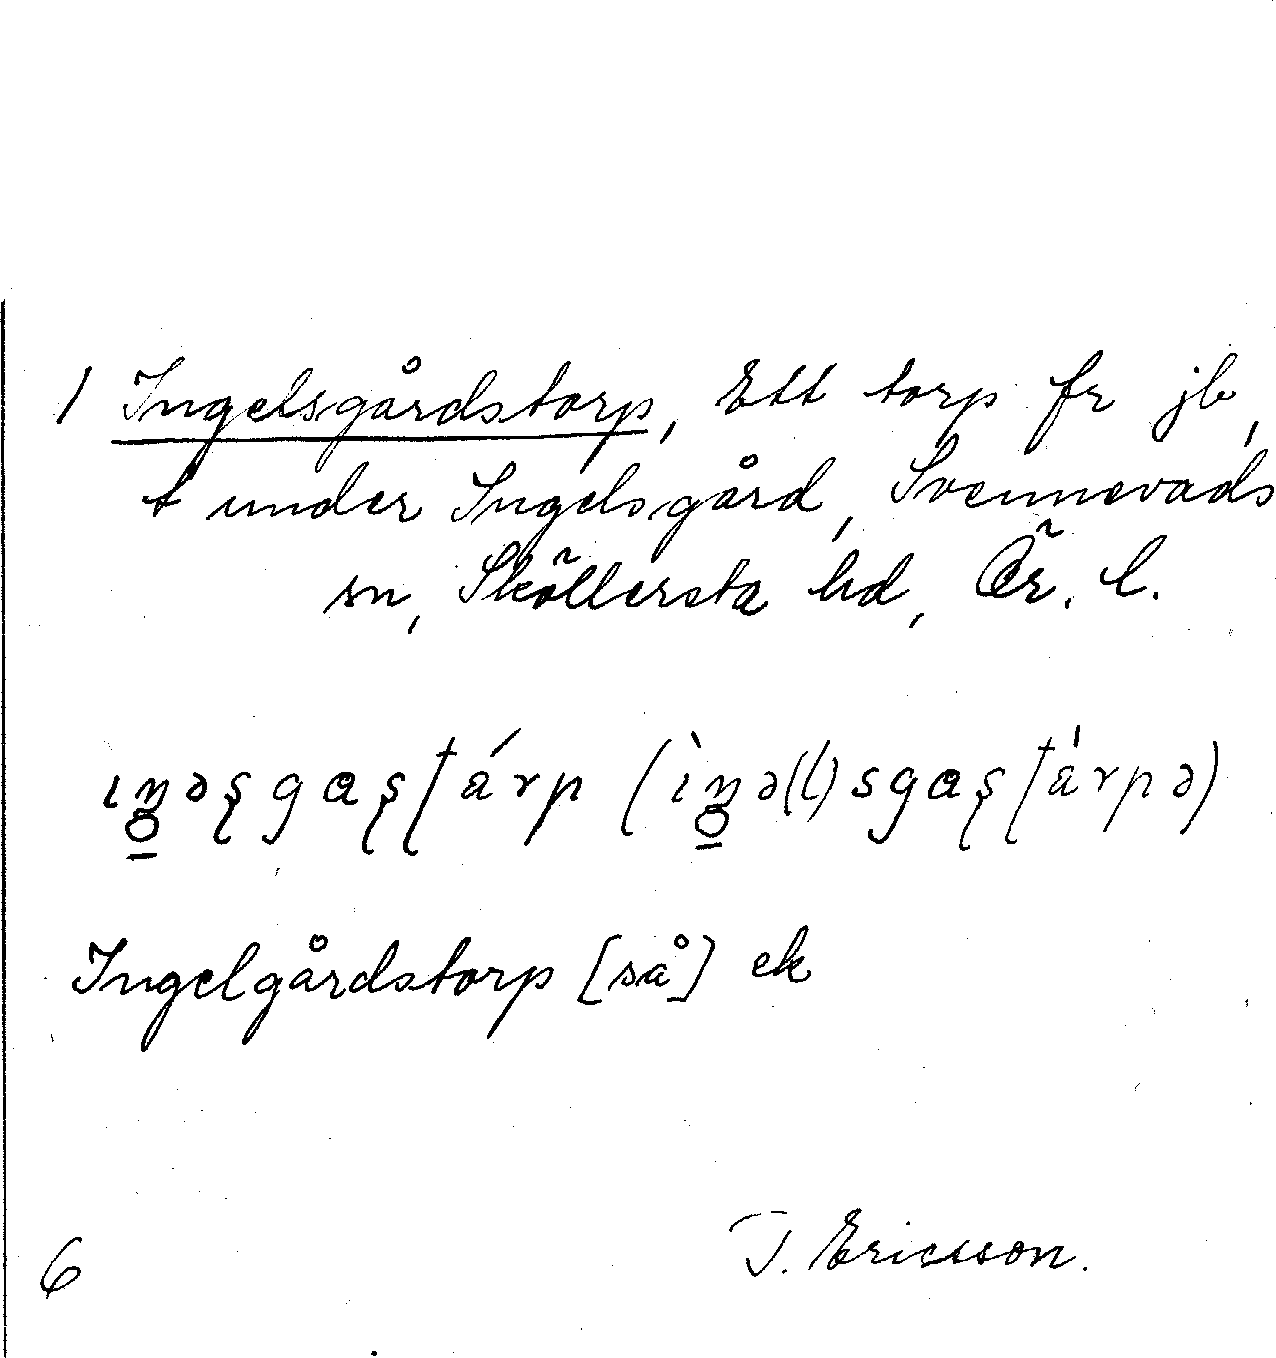 1 Ingelsgårdstorp, Ett torp fr jb,
t under Ingelsgård, Svennevads
sn, Sköllersta hd, Ör. l.
Ingelgårdstorp [så] ek
J. Ericsson.
6